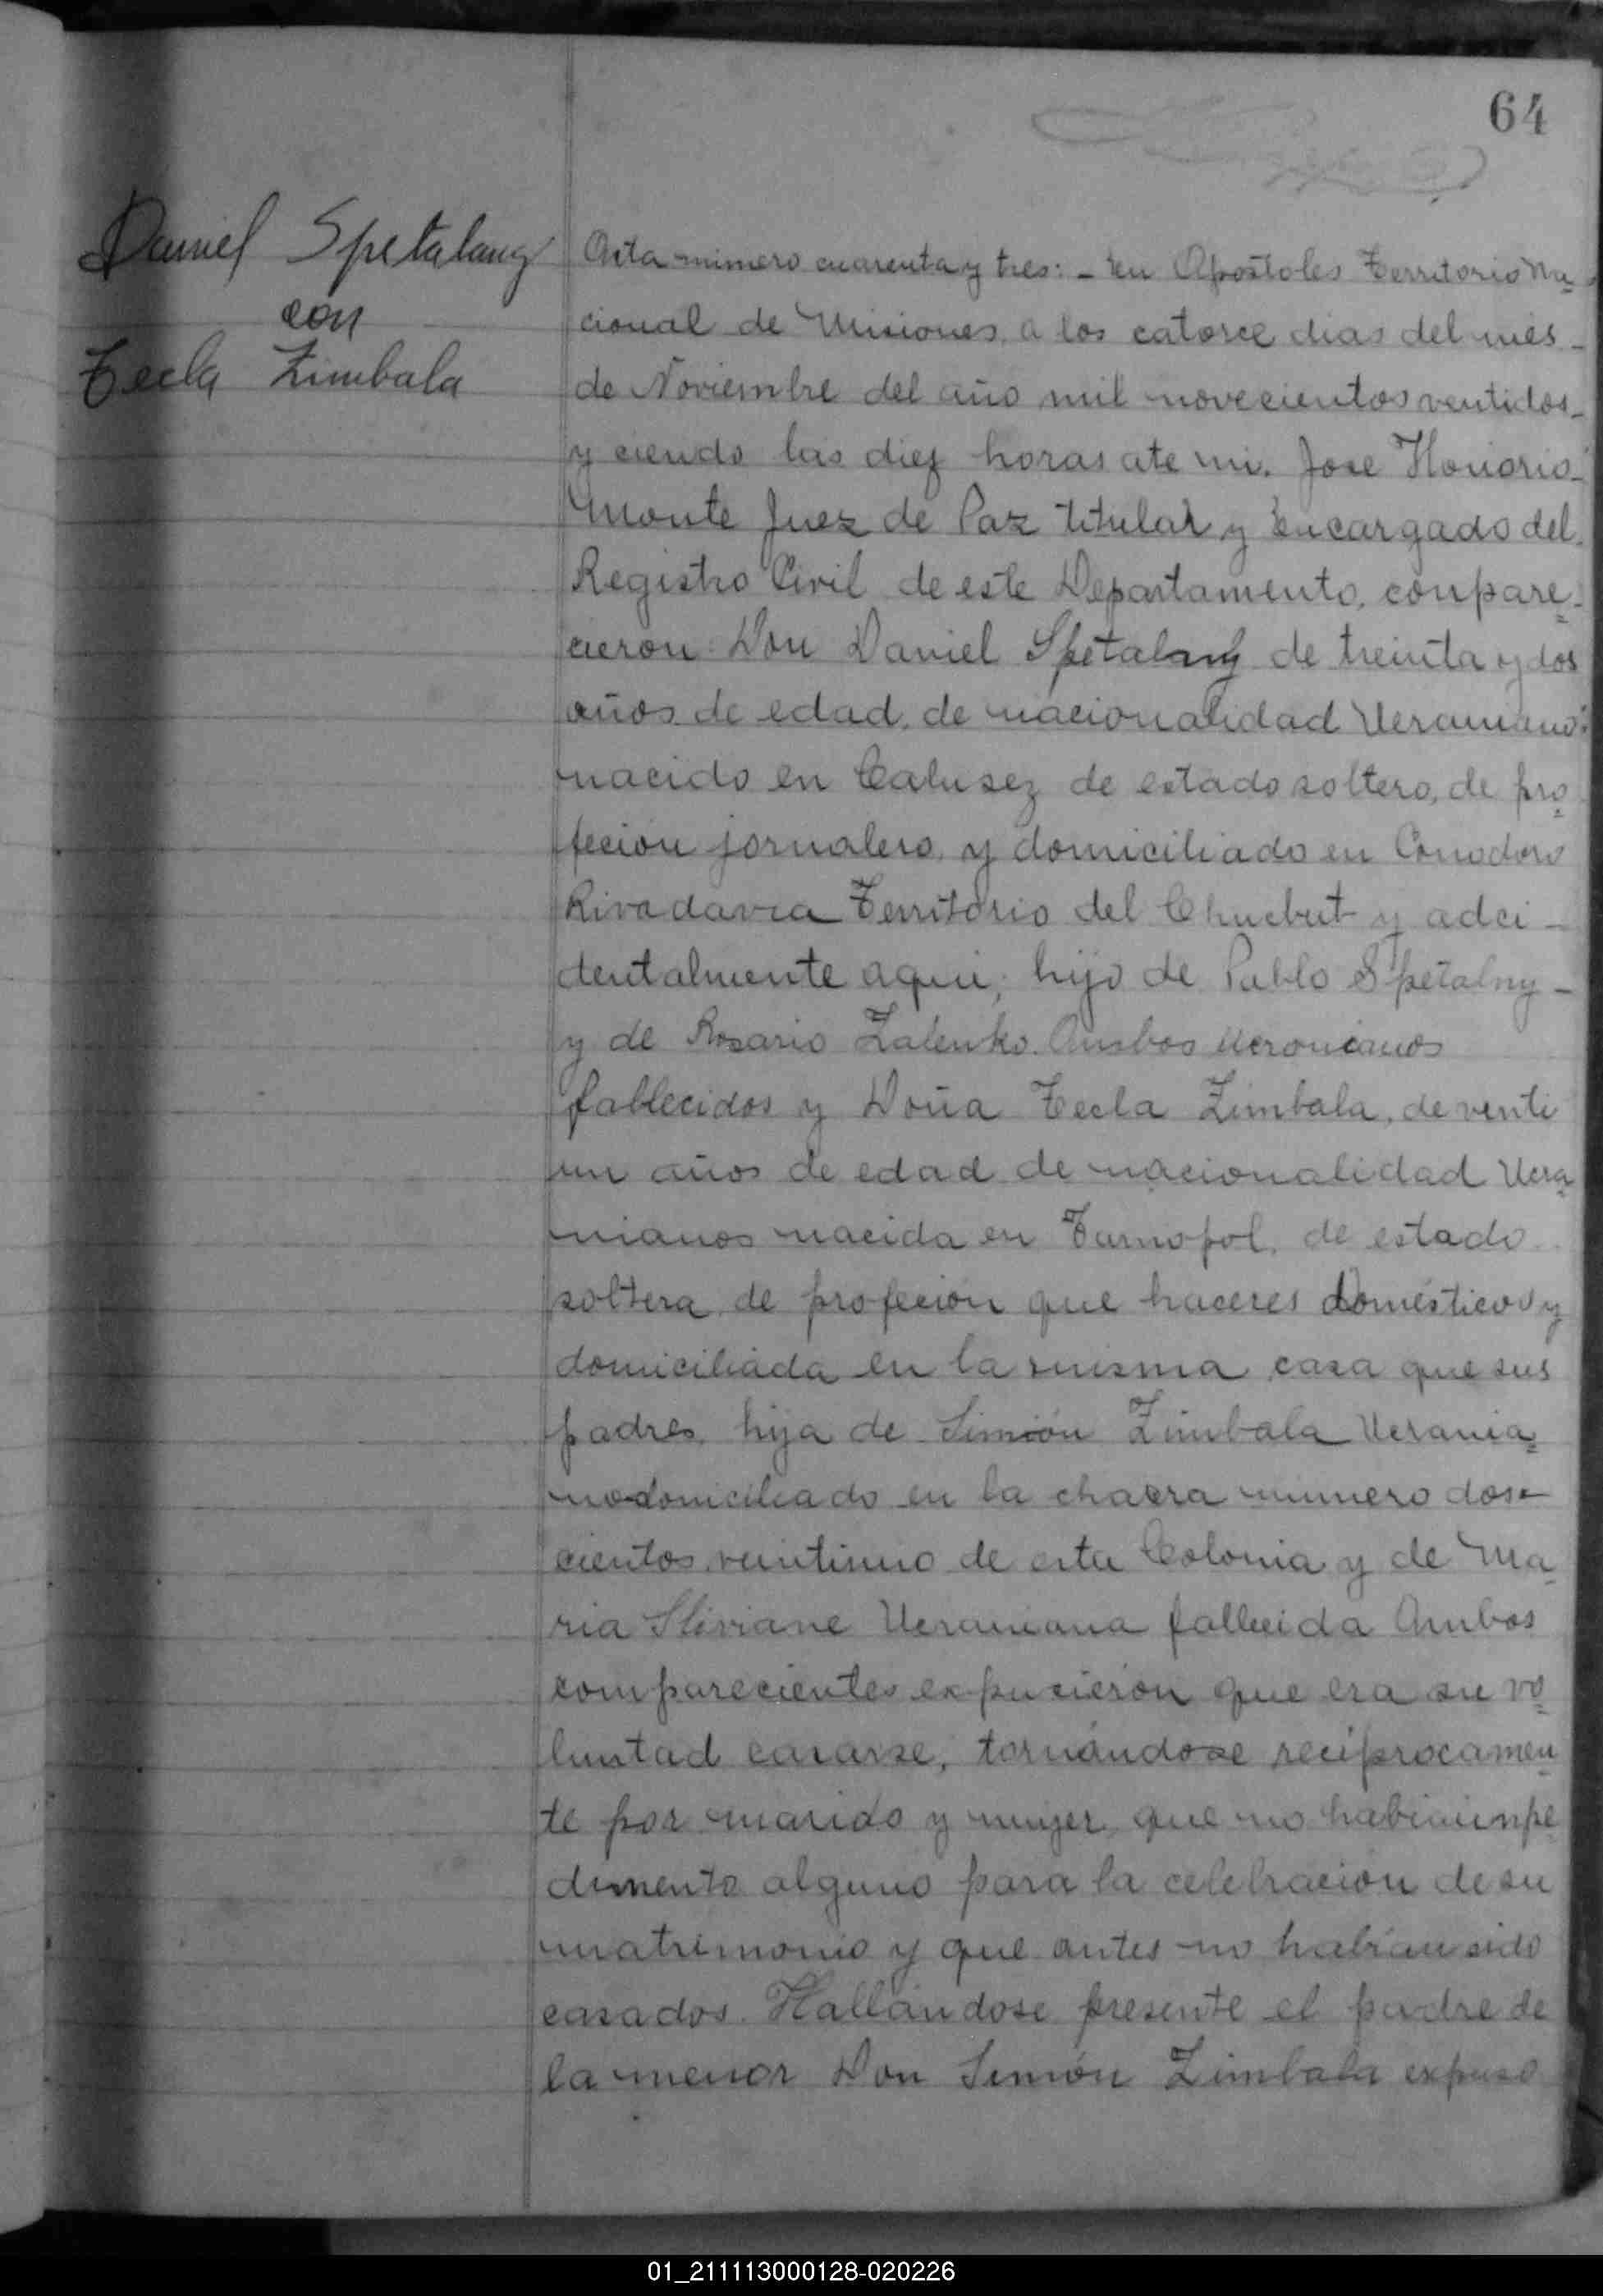 64
Daniel Spetalany
con
Tecla Zimbala
Acta numero cuarenta y tres: - En Apostoles Territorio Na=
cional de Misiones, a los catorce dias del mes -
de Noviembre del año mil novecientos ventidos -
y ciendo las diez horas ate mi. Jose Honorio -
Monte Juez de Paz titular y Encargado del
Registro Civil de este Departamento, conpare=
cieron: Don Daniel Spetalny de treinta y dos
años de edad, de nacionalidad Ucraniano:
nacido en Calusez de estado soltero, de pro=
fecion jornalero, y domiciliado en Comodoro
Rivadavia Territorio del Chucbut y adci -
dentalmente aqui; hijo de Pablo Spetalny -
y de Rosario Zalenko. Ambos ucronianos
fallecidos y Doña Tecla Zimbala, de venti
un años de edad de nacionalidad Ucra=
nianos nacida en Tarnopol, de estado
soltera, de profecion que haceres Domésticos y
domiciliada en la misma casa que sus
padres, hija de Simión Zimbala Ucrania=
no domiciliado en la chacra numero dos=
cientos ventiuno de esta Colonia y de Ma=
ria Sliviane Ucraniana fallecida Ambos
comparecientes expucieron que era su vo=
luntad cararse, tornándose reciprocamen=
te por marido y mujer, que no habia inpe=
dimento alguno para la celebracion de su
matrimonio y que antes no habian sido
casados. Hallándose presente el padre de
la menor Don Simón Zimbala expuso
01_211113000128-020226